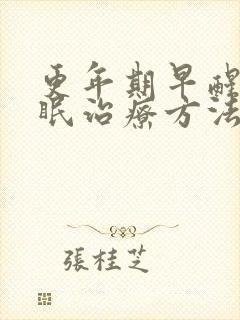 更年期早醒
眠治療方法
張桂芝